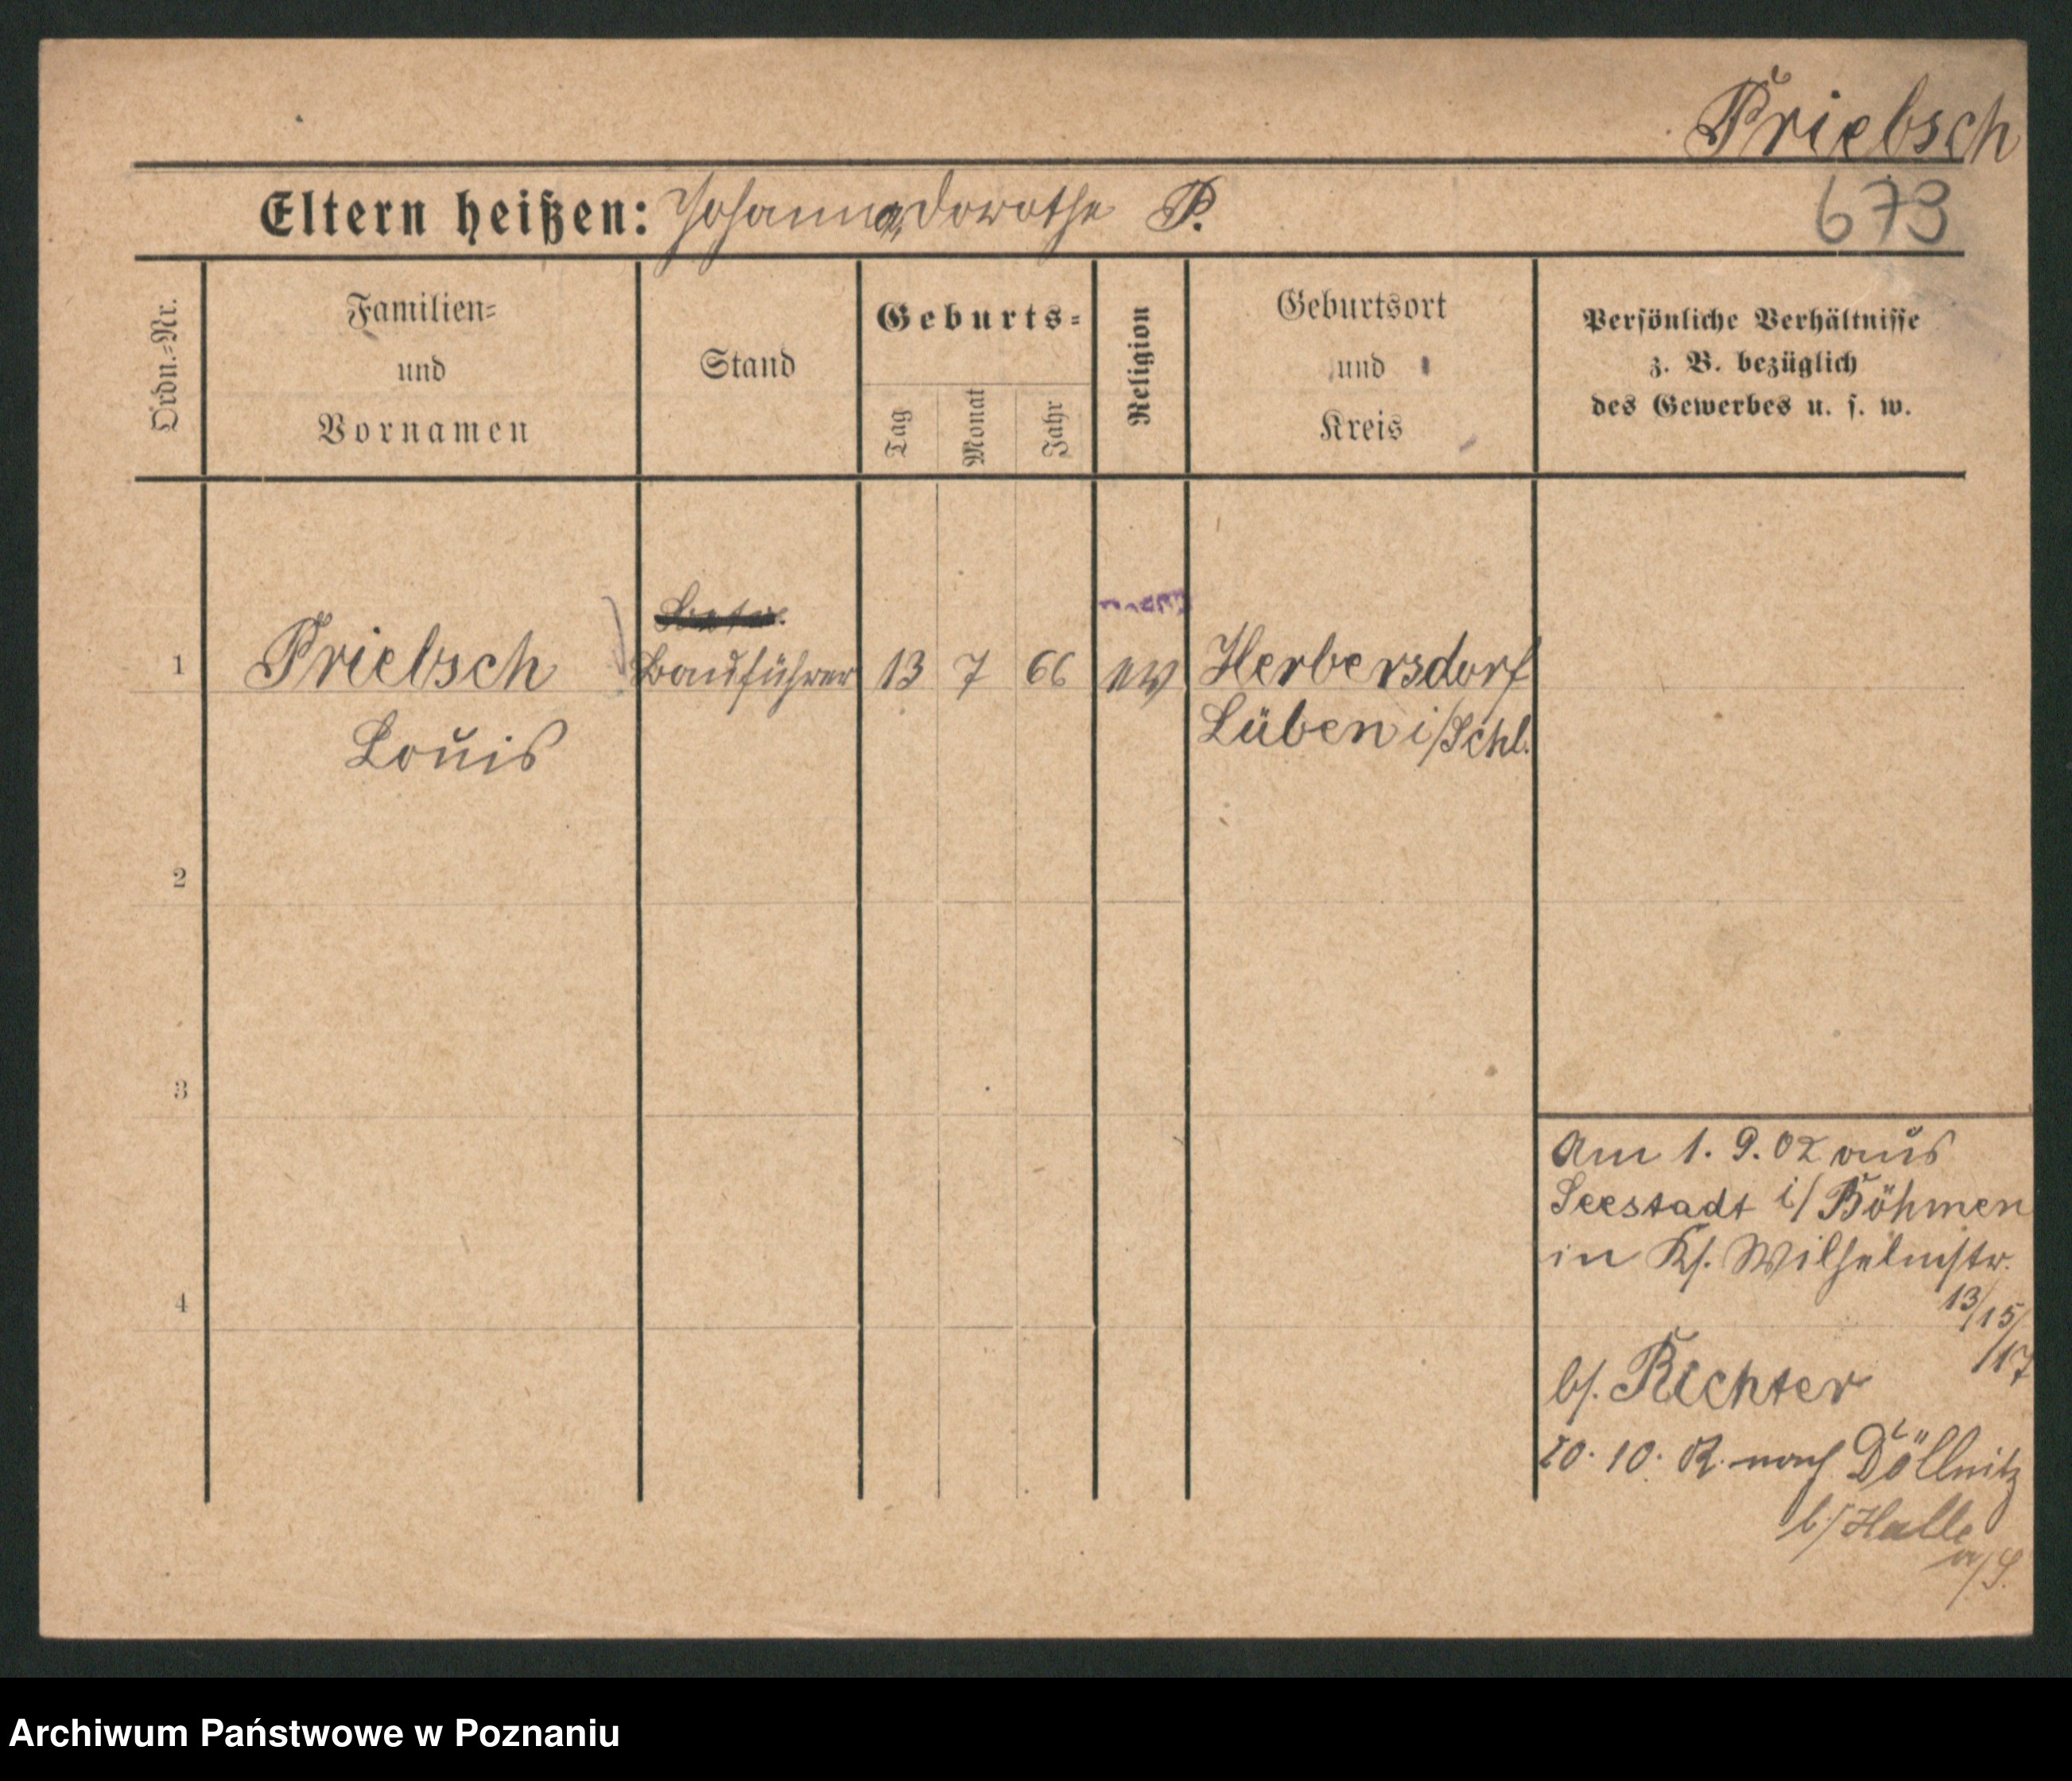 Priebsch
Eltern heißen: Johanna, Dorothe P.
673
Ordn.-Nr.
Familien-
und
Vornamen
Stand
Geburts-
Tag
Monat
Jahr
Religion
Geburtsort
und
Kreis
Persönliche Verhältnisse
z. B. bezüglich
des Gewerbes u. s. w.
1 Priebsch Bauführer 13 7 66 ev Herbersdorf
Louis Lüben i/Schl.
2
3
4
Am 1. 9. 02 aus
Seestadt i/Böhmen
in Kh. Wilhelmstr.
13/15/
/17
bh. Richter
20. 10. 02. nach Döllnitz
b/Halle
a/S.
Archiwum Państwowe w Poznaniu